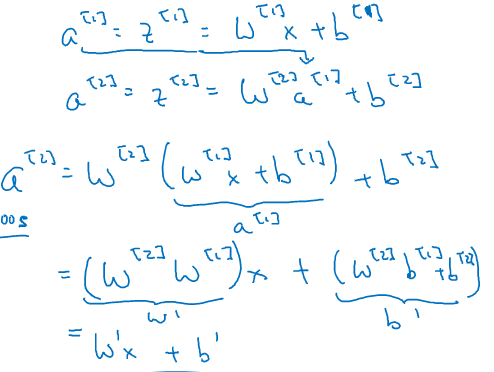 a^[1] = z^[1] = W^[1] x + b^[1]
a^[2] = z^[2] = W^[2] a^[1] + b^[2]
a^[2] = W^[2] (W^[1] x + b^[1]) + b^[2]
a^[1]
oos
= (W^[2] W^[1]) x + (W^[2] b^[1] + b^[2])
W' b'
= W'x + b'